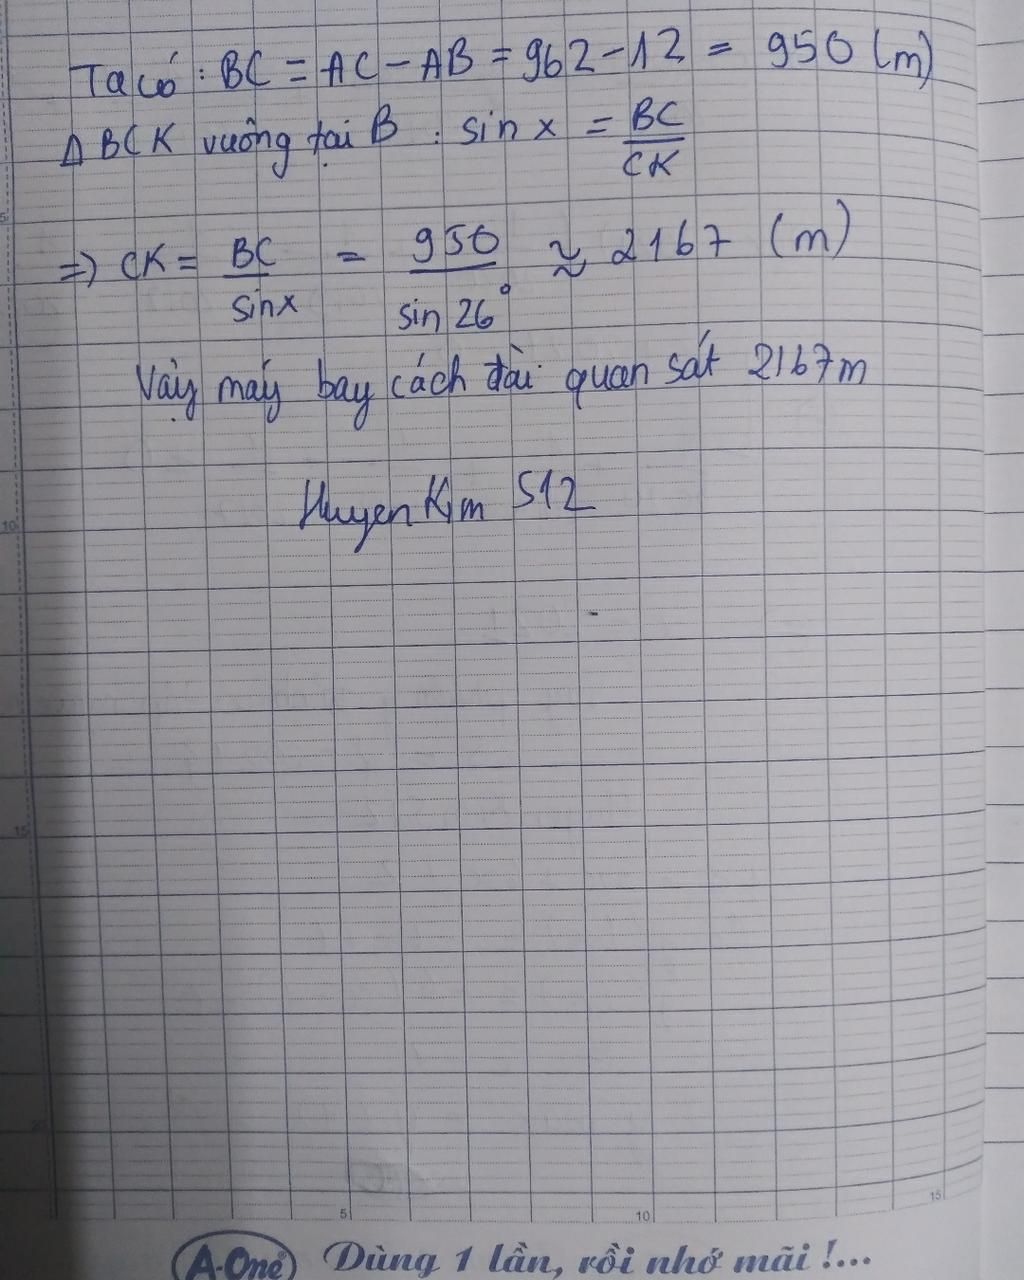 Ta có : BC = AC - AB = 962 - 12 = 950 (m)
Δ BCK vuông tại B : sin x = BC/CK
=> CK = BC/sin x = 950/sin 26° ≈ 2167 (m)
Vậy máy bay cách đài quan sát 2167m
Huyen Kim 512
5
10
15
5 10 15
A-One Dùng 1 lần, rồi nhớ mãi !...